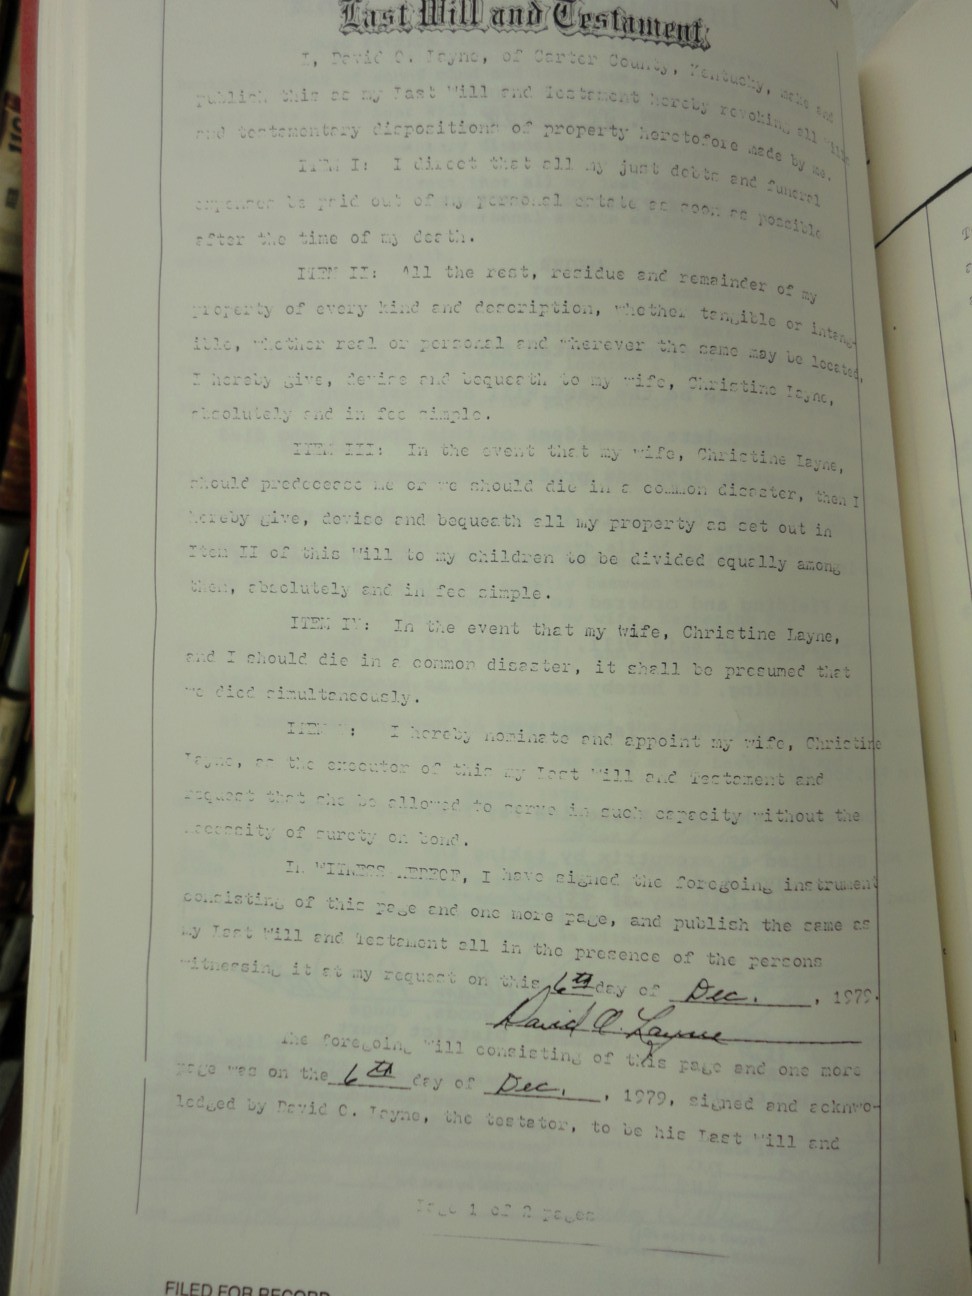 Last Will and Testament
I, David O. Layne, of Carter County, Kentucky, make and
publish this as my Last Will and Testament hereby revoking all wills
and testamentary dispositions of property heretofore made by me.
ITEM I: I direct that all my just debts and funeral
expenses be paid out of my personal estate as soon as possible
after the time of my death.
ITEM II: All the rest, residue and remainder of my
property of every kind and description, whether tangible or intang-
ible, whether real or personal and wherever the same may be located,
I hereby give, devise and bequeath to my wife, Christine Layne,
absolutely and in fee simple.
ITEM III: In the event that my wife, Christine Layne,
should predecease me or we should die in a common disaster, then I
hereby give, devise and bequeath all my property as set out in
Item II of this Will to my children to be divided equally among
them, absolutely and in fee simple.
ITEM IV: In the event that my wife, Christine Layne,
and I should die in a common disaster, it shall be presumed that
we died simultaneously.
ITEM V: I hereby nominate and appoint my wife, Christine
Layne, as the executor of this my Last Will and Testament and
request that she be allowed to serve in such capacity without the
necessity of surety on bond.
In WITNESS HEREOF, I have signed the foregoing instrument
consisting of this page and one more page, and publish the same as
my Last Will and Testament all in the presence of the persons
witnessing it at my request on this 6th day of Dec. , 1979.
David O. Layne
The foregoing Will consisting of this page and one more
page was on the 6th day of Dec. , 1979, signed and acknwo-
ledged by David O. Layne, the testator, to be his Last Will and
Page 1 of 2 pages
FILED FOR RECORD